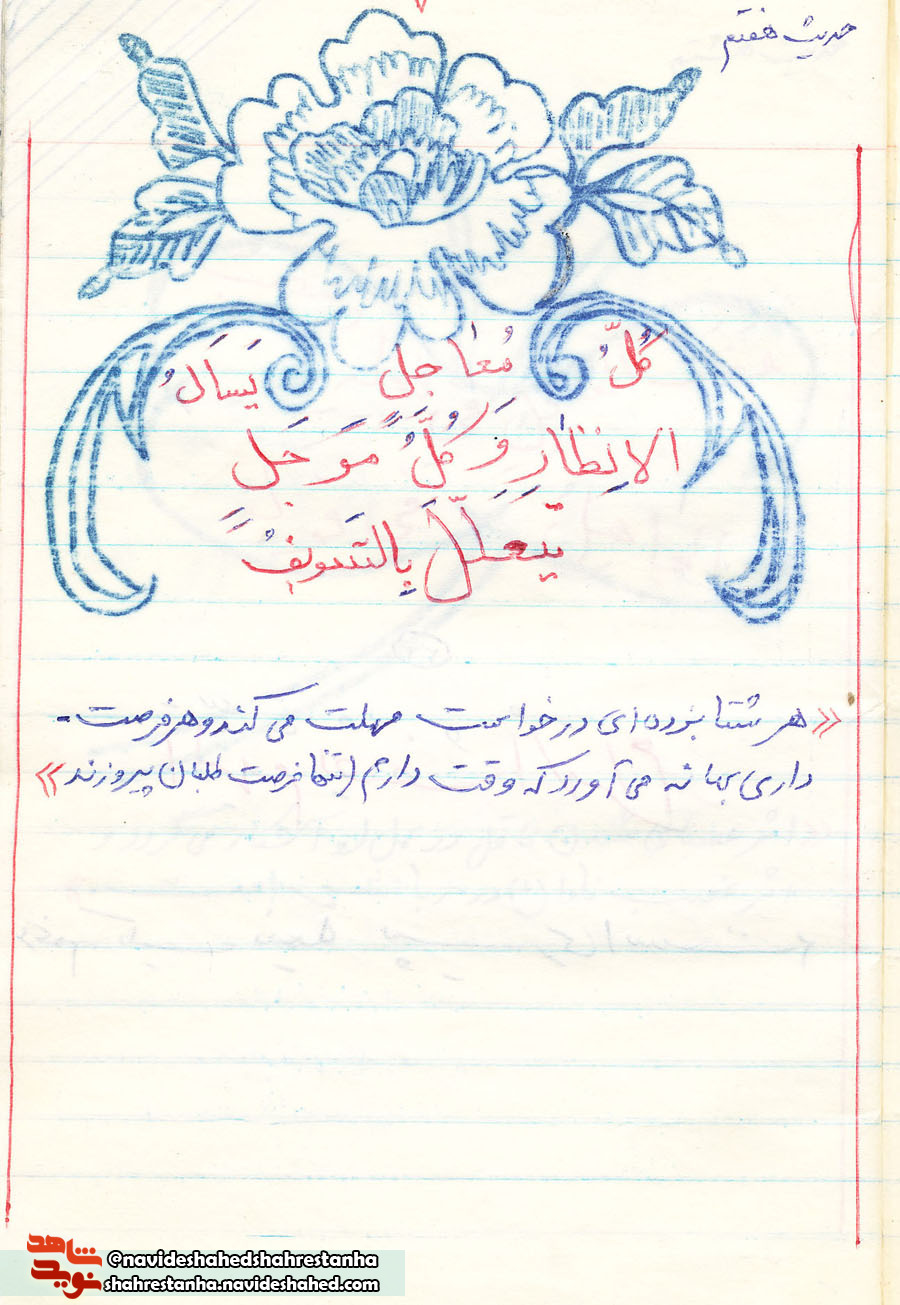 حدیث هفتم
کُلُّ مُعاجلٍ یَسالُ
الاِنظارِ وَ کُلُّ مَوَجَلٍ
یتعللُّ بِالتَسَویفُ
«هر شتابزده‌ای درخواست مهلت می کند و هر فرصت-
داری بهانه می آورد که وقت دارم (تنها فرصت طلبان پیروزند»
شاهد
نوید
@navideshahedshahrestanha
shahrestanha.navideshahed.com